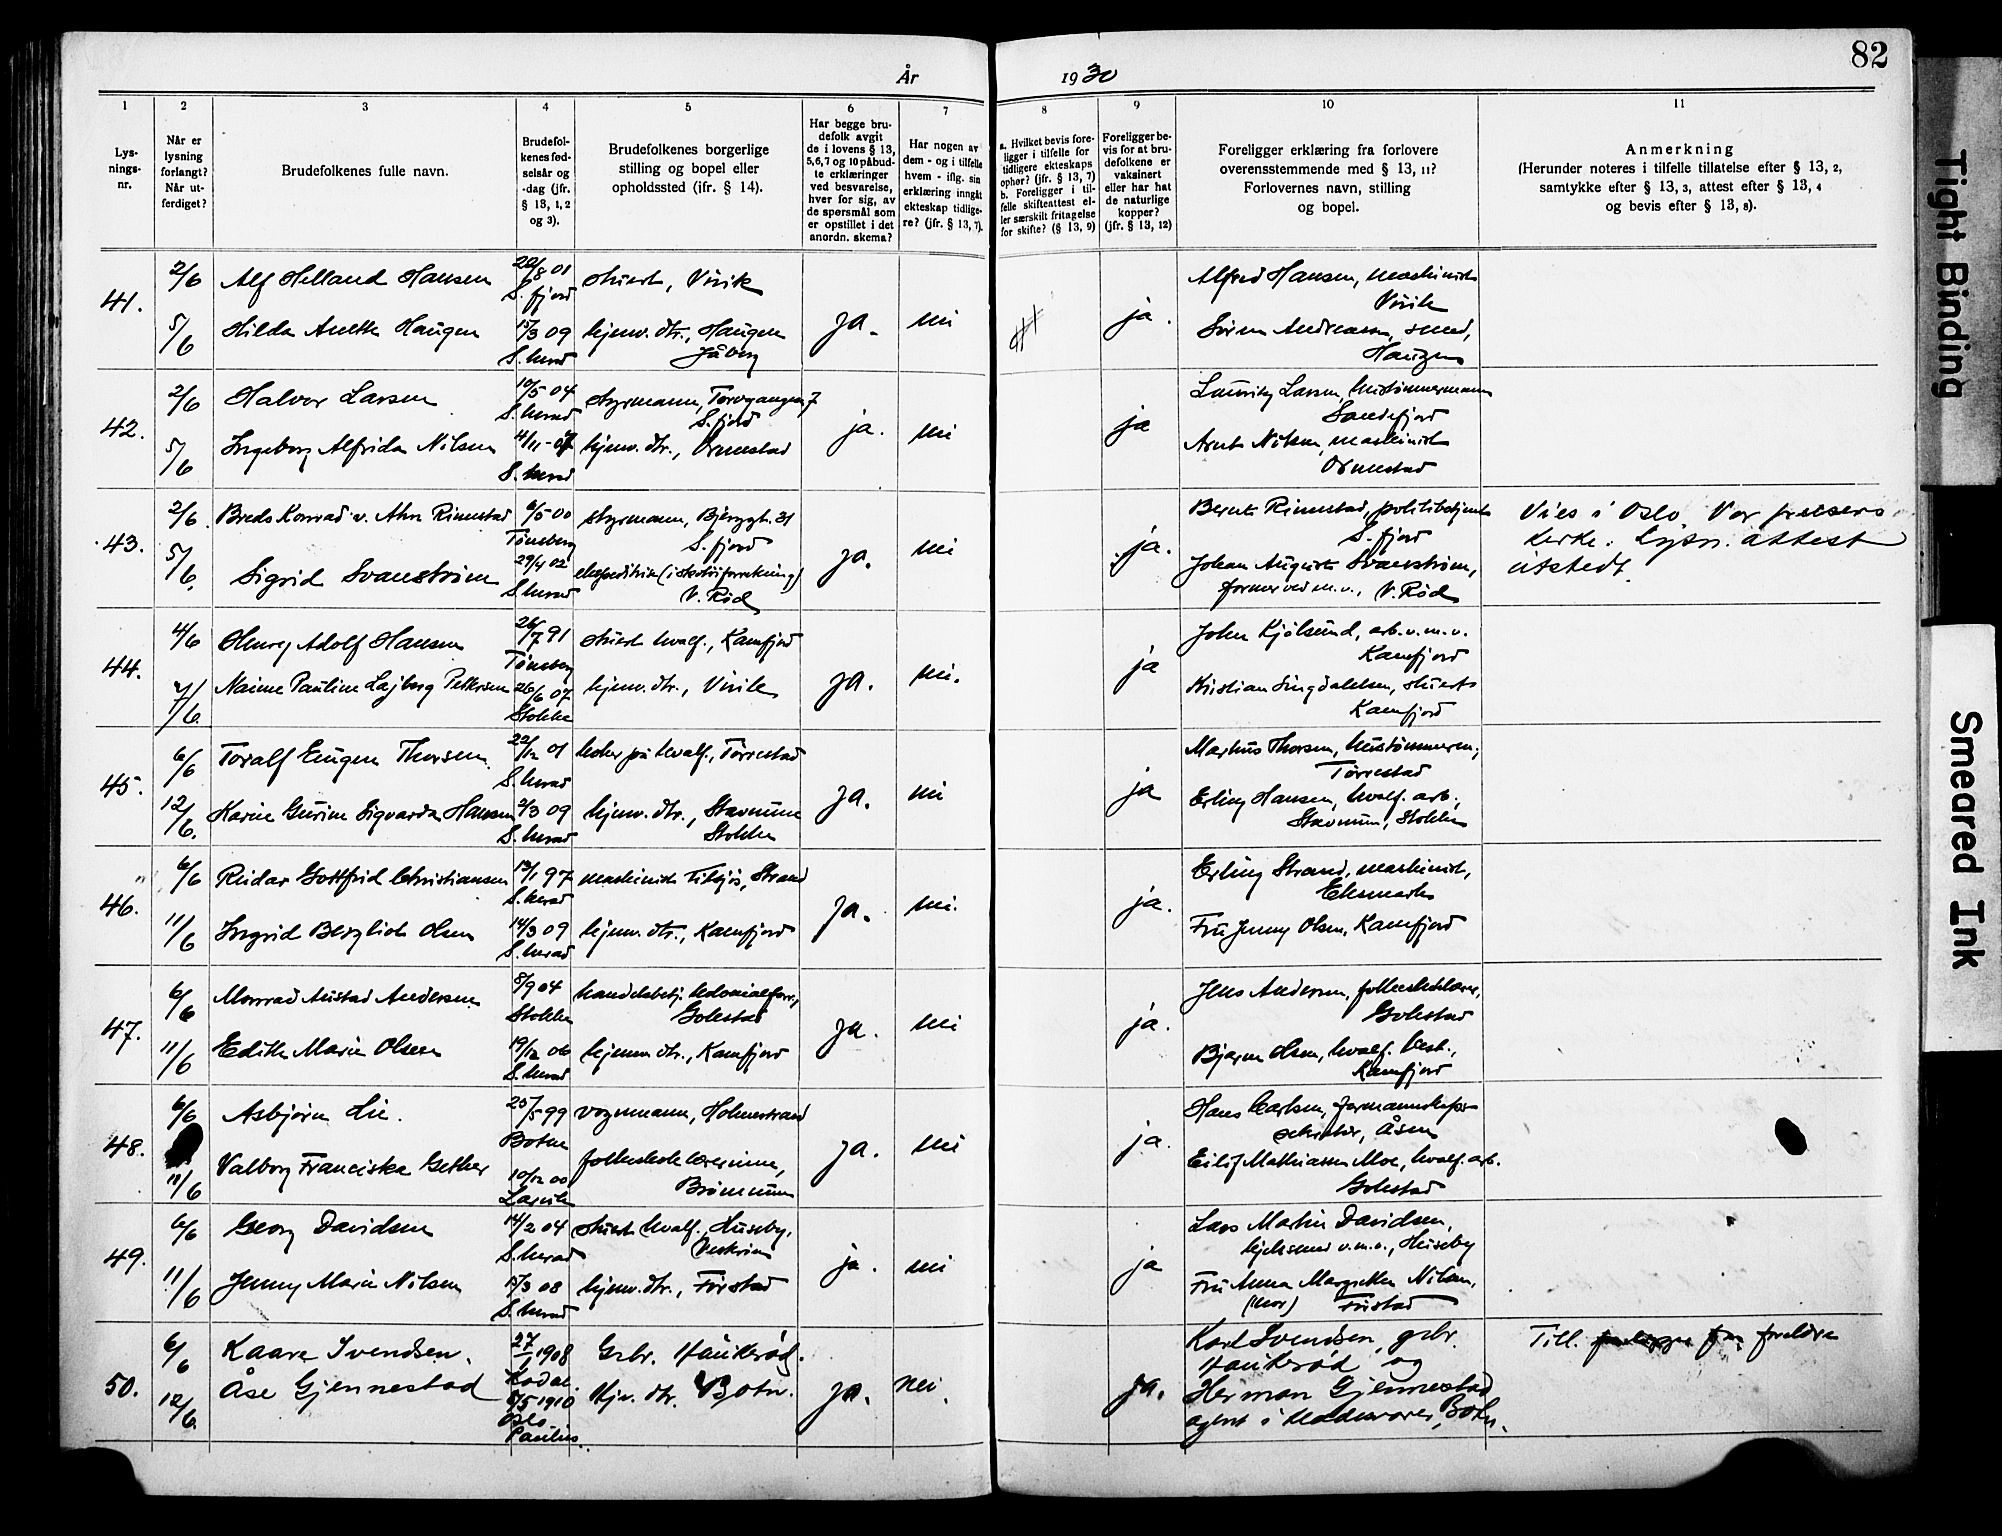 82
År 1930
1 2 3 4 5 6 7 8 9 10 11
Lys-
nings-
nr.
Når er
lysning
forlangt?
Når ut-
ferdiget?
Brudefolkenes fulle navn.
Brudefol-
kenes fød-
selsår og
-dag (jfr.
§ 13, 1, 2
og 3).
Brudefolkenes borgerlige
stilling og bopel eller
opholdssted (jfr. § 14).
Har begge bru-
defolk avgit
de i lovens § 13,
5, 6, 7 og 10 påbud-
te erklæringer
ved besvarelse,
hver for sig, av
de spørsmål som
er opstillet i det
anordn. skema?
Har nogen av
dem - og i tilfelle
hvem - iflg. sin
erklæring inngåt
ekteskap tidlige-
re? (jfr. § 13, 7).
a. Hvilket bevis fore-
ligger i tilfelle for
tidligere ekteskaps
ophør? (jfr. § 13, 7)
b. Foreligger i til-
felle skifteattest el-
ler særskilt fritagelse
for skifte? (§ 13, 9)
Foreligger be-
vis for at bru-
defolkene er
vaksinert
eller har hat
de naturlige
kopper?
(jfr. § 13, 12)
Foreligger erklæring fra forlovere
overensstemmende med § 13, 11?
Forlovernes navn, stilling
og bopel.
Anmerkning
(Herunder noteres i tilfelle tillatelse efter § 13, 2,
samtykke efter § 13, 3, attest efter § 13, 4
og bevis efter § 13, 8).
41. 2/6 Alf Helland Hansen 22/8 01 S. fjord stuert, Virik
5/6 Hilda Anette Haugen 15/3 09 S. herad hjemv. dtr., Haugen
Jåberg
ja. nei ja.
Alfred Hansen, maskinist
Virik
Søren Andreassen, smed,
Haugen
42. 2/6 Halvor Larsen 10/5 04 S. herad styrmann, Torvgangen 7
S. fjord
5/6 Ingeborg Alfrida Nilsen 4/11-07 S. herad hjemv. dtr., Ormestad
ja. nei ja
Lauritz Larsen, hustømmermann
Sandefjord
Arnt Nilsen, maskinist
Ormestad
43. 2/6. Konrad v. Rimestad 6/5 00 Tønsberg styrmann, Bjerggt. 31
S. fjord
5/6. Sigrid Svanstrøm 29/4 02 S. herad
V. Rød
ja. nei ja.
Bernt Rimestad, politibetjent
S. fjord
Johan August Svanstrøm,
former ved m.v., V. Rød
Vies i Oslo. Vor frelsers
kirke. Lysn. attest
utstedt.
44. 4/6 Henry Adolf Hansen 26/7 91 Tønsberg stuert hvalf., Kamfjord
7/6. Pauline Pettersen 26/6 07 Stokke hjemv. dtr., Virik
ja. nei. ja
John Kjølsund, arb. v. m.v.
Kamfjord
Kristian Singdahlsen, stuert
Kamfjord
45. 6/6 Toralf Eugen Thorsen 22/12 01 S. herad koker på hvalf., Tørrestad
12/6. Karine Gurine Sigvarda Hansen 2/3 09 S. herad hjemv. dtr., Stavnum
Stokke
ja. nei ja
Markus Thorsen, hustømmerm.,
Tørrestad
Erling Hansen, hvalf. arb.,
Stavnum, Stokke
46. 6/6 Reidar Gottfrid Christiansen 13/1 97 S. herad maskinist tilsjøs, Strand
11/6 Ingrid Bergliot Olsen 14/3 09 S. herad hjemv. dtr., Kamfjord
ja. nei. ja.
Erling Strand, maskinist,
Fru Jenny Olsen, Kamfjord
47. 6/6 Austad Andersen 8/9 04 Stokke handelsbetj. kolonialforr.,
Gokstad
11/6 Edith Marie Olsen 19/12 06 S. herad hjemv. dtr., Kamfjord
ja. nei ja.
Jens Andersen, folkeskolelærer,
Gokstad
Bjarne Olsen, hvalf. best.,
Kamfjord
48. 6/6 Asbjørn Lie. 25/5 99 Botne vognmann, Holmestrand
11/6 Valborg Franciska Gether 10/12 00 Larvik folkeskolelærerinne,
Brønnum
ja. nei ja.
Hans Carlsen, formannskaps-
sekretær, Åsen
Eilif Mathiassen Moe, hvalf. arb.
Gokstad
49. 6/6 Georg Davidsen 14/2 04 S. herad stuert hvalf., Huseby,
Vestrum
11/6 Jenny Marie Nilsen 15/3 08 S. herad hjemv. dtr., Furstad
ja. nei ja
Lars Martin Davidsen,
kjelsmed v.m.v., Huseby
Fru Anna Margrethe Nilsen,
(mor) Furstad
50. 6/6 Kaare Svendsen. 27/1 1908 Kodal Grbr. Haukerød.
12/6. Åse Gjennestad 8/5 1910 Oslo Paulus. Hjv. dtr. Botn.
ja. nei. ja.
Karl Svendsen, grbr.
Haukerød og
Herman Gjennestad
agent i kolonvarer, Botn.
Till. foreldre
Tight Binding
Smeared Ink